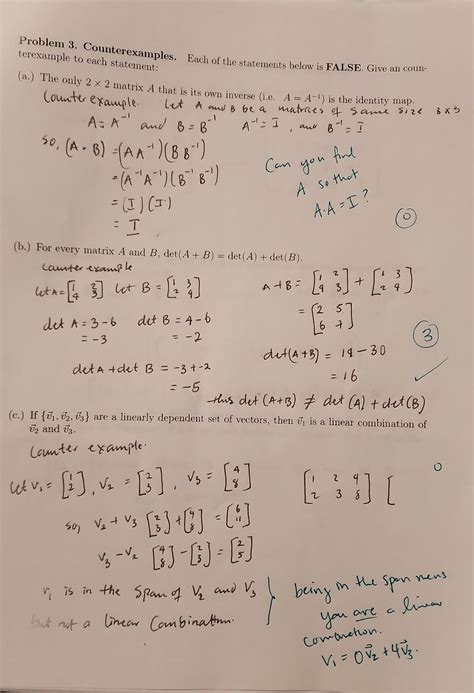 Problem 3. Counterexamples. Each of the statements below is FALSE. Give an coun-
terexample to each statement:
(a.) The only 2 × 2 matrix A that is its own inverse (i.e. A = A⁻¹) is the identity map.
Counter example. Let A and B be a matrices of same size 3x3
A = A⁻¹ and B = B⁻¹ A⁻¹ = I, and B⁻¹ = I
So, (A · B) = (A A⁻¹)(B B⁻¹)
= (A⁻¹ A⁻¹)(B⁻¹ B⁻¹)
= (I)(I)
= I
Can you find
A so that
A·A = I?
0
(b.) For every matrix A and B, det(A + B) = det(A) + det(B).
Counter example
let A = [1 2; 4 3] let B = [1 3; 2 4]
A+B = [1 2; 4 3] + [1 3; 2 4]
= [2 5; 6 7]
det A = 3-6 det B = 4-6
= -3 = -2
det(A+B) = 14 - 30
= 16
det A + det B = -3 + -2
= -5
3
thus det (A+B) ≠ det (A) + det(B)
(c.) If {v⃗₁, v⃗₂, v⃗₃} are a linearly dependent set of vectors, then v⃗₁ is a linear combination of
v⃗₂ and v⃗₃.
Counter example.
let v₁ = [1; 2], v₂ = [2; 3], v₃ = [4; 8]
[1 2 4; 2 3 8] [
0
so, v₂ + v₃ [2; 3] + [4; 8] = [6; 11]
v₃ - v₂ [4; 8] - [2; 3] = [2; 5]
v₁ is in the span of v₂ and v₃
but not a linear Combination.
being in the span means
you are a linear
combination.
v₁ = 0v⃗₂ + 4v⃗₃